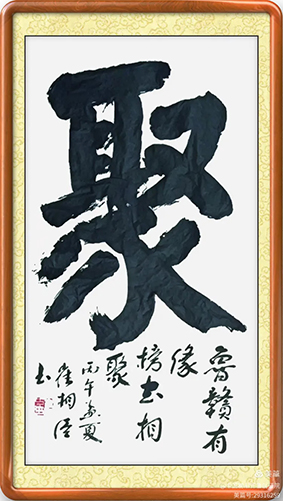 聚
鲁赣有
缘
榜书相
聚
丙午夏
崔相
书